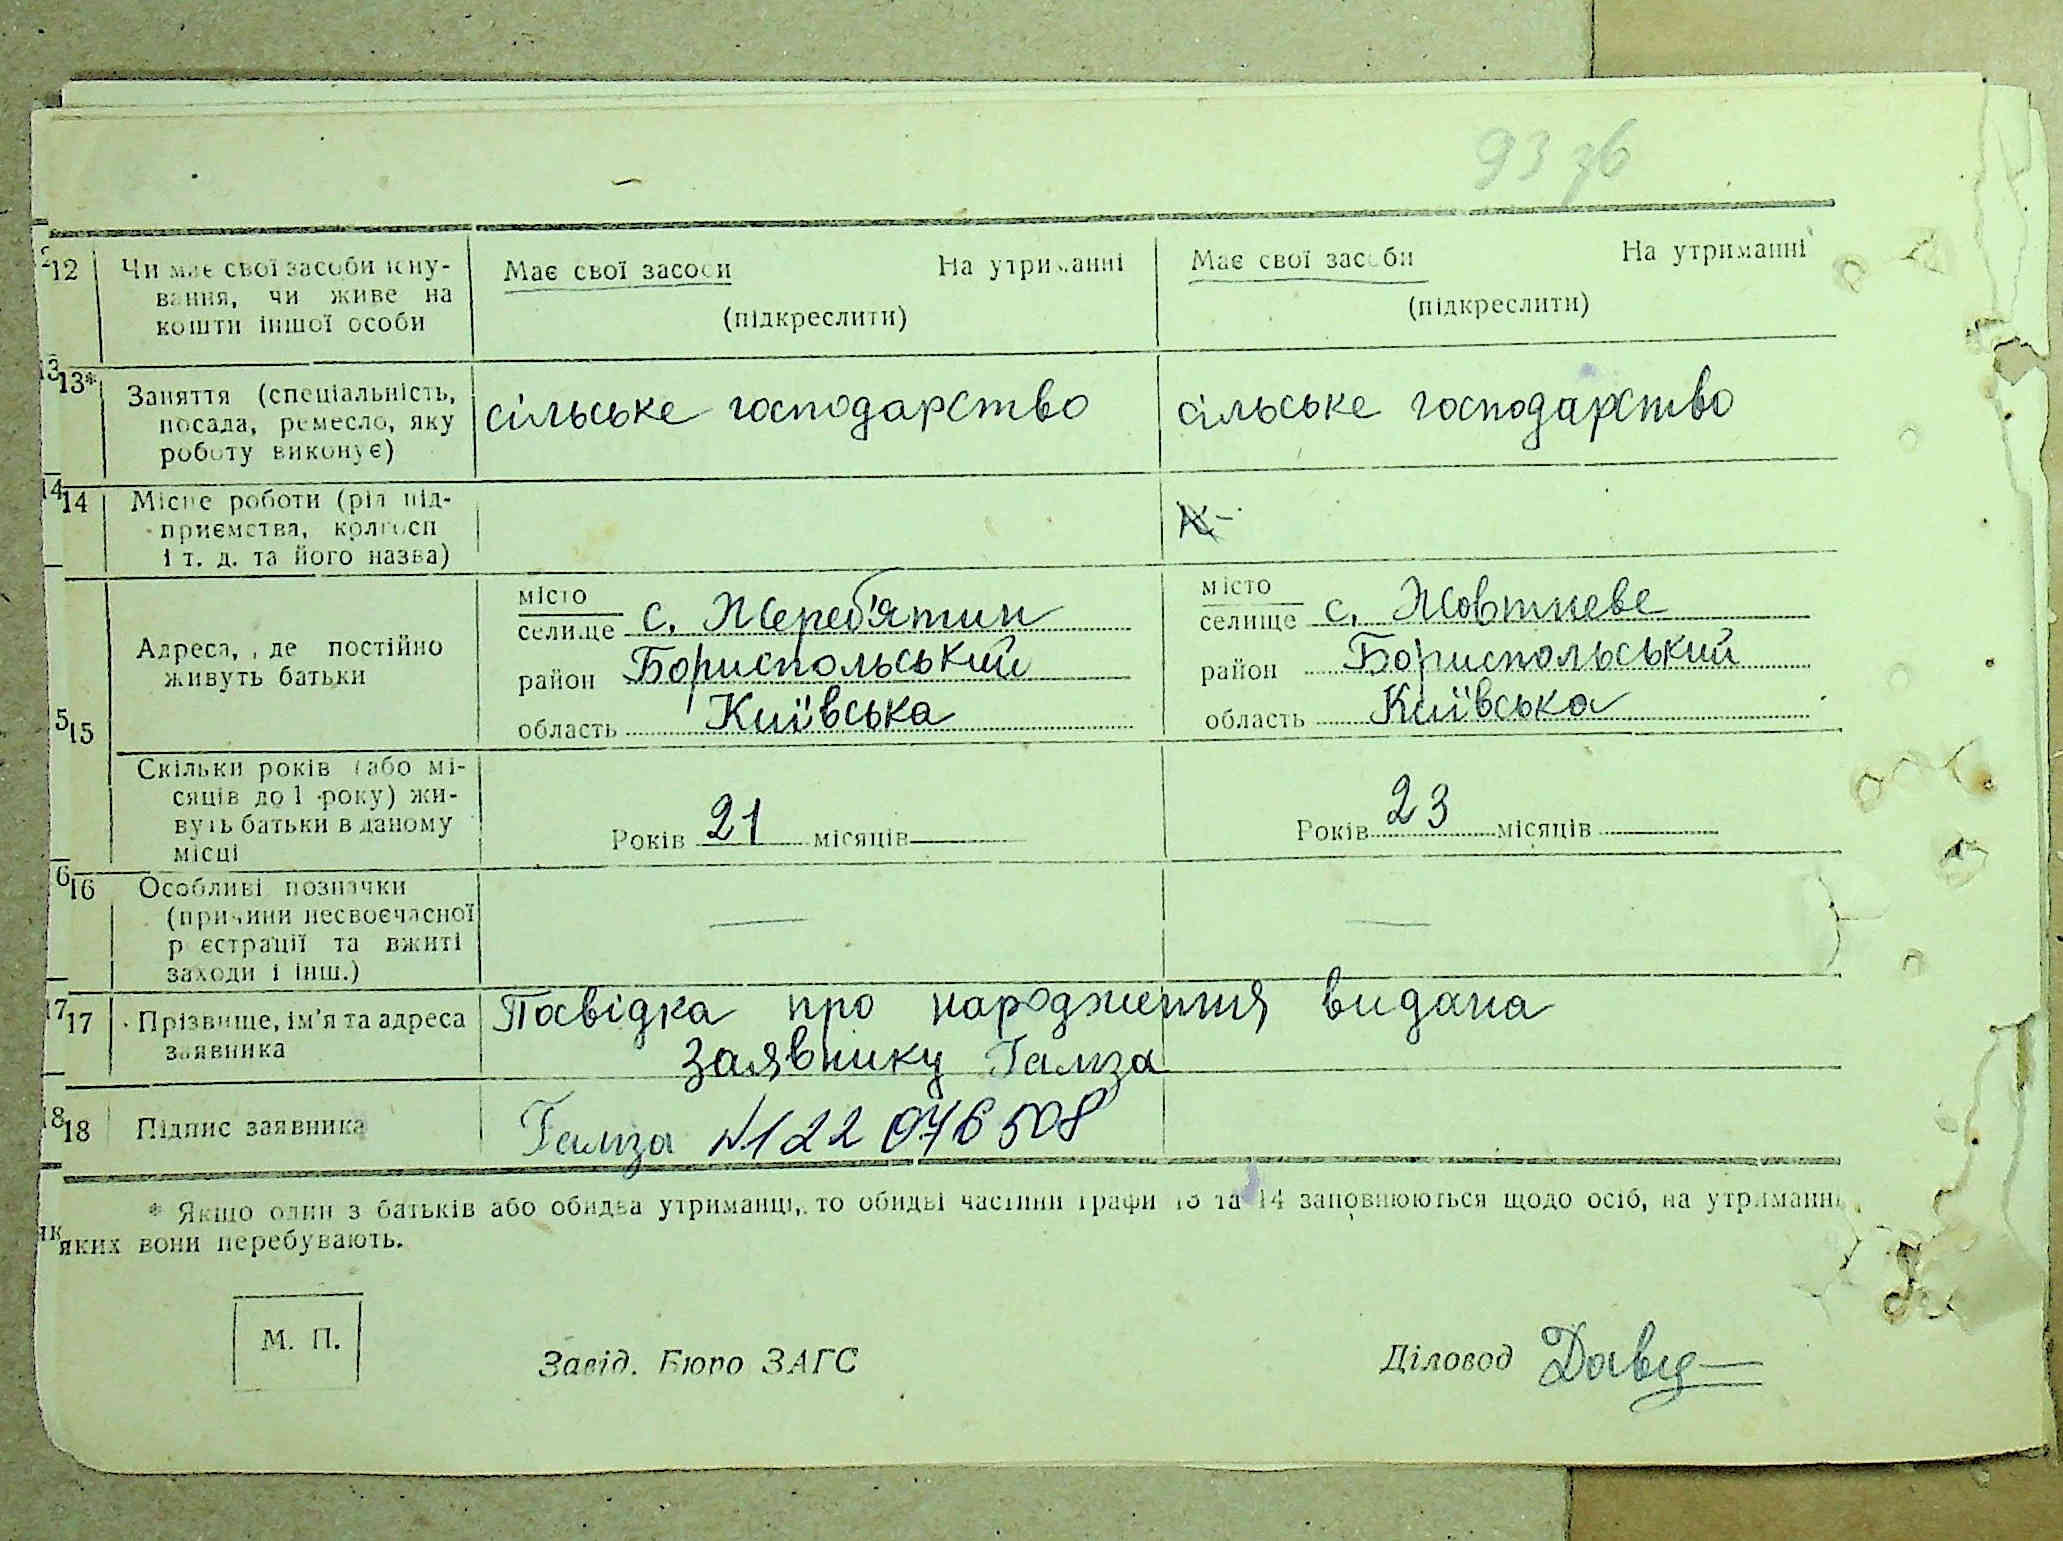 93 зв
12 Чи має свої засоби існу- Має свої засоби На утриманні Має свої засоби На утриманні
вання, чи живе на (підкреслити) (підкреслити)
кошти іншої особи
13* Заняття (спеціальність, сільське господарство сільське господарство
посада, ремесло, яку
роботу виконує)
14 Місце роботи (рід під-
приємства, колгосп
і т. д. та його назва)
15 Адреса, де постійно живуть батьки
місто
селище с. Жереб'ятин
район Бориспольський
область Київська
місто
селище с. Жовтневе
район Бориспольський
область Київська
Скільки років (або мі-
сяців до 1 року) жи-
вуть батьки в даному
місці
Років 21 місяців
Років 23 місяців
16 Особливі позначки
(причини несвоєчасної
реєстрації та вжиті
заходи і інш.)
— —
17 Прізвище, ім'я та адреса Посвідка про народження видана
заявника заявнику Гамза
18 Підпис заявника Гамза №122 076508
* Якщо один з батьків або обидва утриманці, то обидві частини графи 13 та 14 заповнюються щодо осіб, на утриманні
яких вони перебувають.
М. П.
Завід. Бюро ЗАГС
Діловод